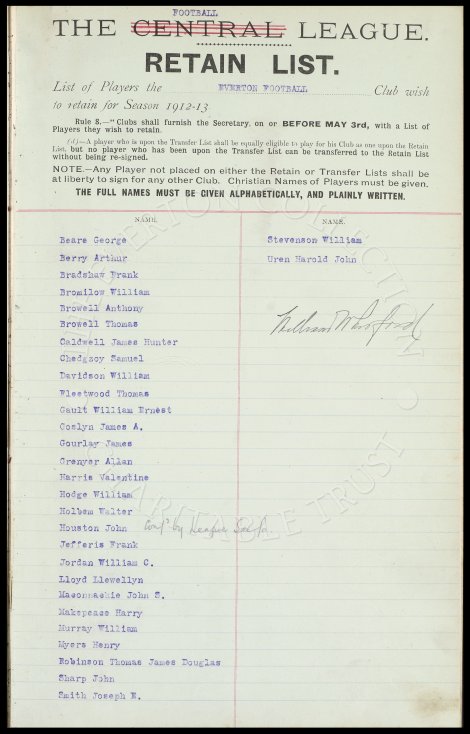 FOOTBALL
THE CENTRAL LEAGUE.
RETAIN LIST.
List of Players the EVERTON FOOTBALL Club wish
to retain for Season 1912-13.
Rule 8.—"Clubs shall furnish the Secretary, on or BEFORE MAY 3rd, with a List of
Players they wish to retain.
(d)—A player who is upon the Transfer List shall be equally eligible to play for his Club as one upon the Retain
List, but no player who has been upon the Transfer List can be transferred to the Retain List
without being re-signed.
NOTE.—Any Player not placed on either the Retain or Transfer Lists shall be
at liberty to sign for any other Club. Christian Names of Players must be given.
THE FULL NAMES MUST BE GIVEN ALPHABETICALLY, AND PLAINLY WRITTEN.
NAME.
Beare George
Berry Arthur
Bradshaw Frank
Bromilow William
Browell Anthony
Browell Thomas
Caldwell James Hunter
Chedgzoy Samuel
Davidson William
Fleetwood Thomas
Gault William Ernest
Goslyn James A.
Gourlay James
Grenyer Allan
Harris Valentine
Hodge William
Holbem Walter
Houston John by League
Jefferis Frank
Jordan William C.
Lloyd Llewellyn
Maconnachie John S.
Makepeace Harry
Murray William
Myers Henry
Robinson Thomas James Douglas
Sharp John
Smith Joseph E.
NAME.
Stevenson William
Uren Harold John
William
EVERTON COLLECTION
CHARITABLE TRUST